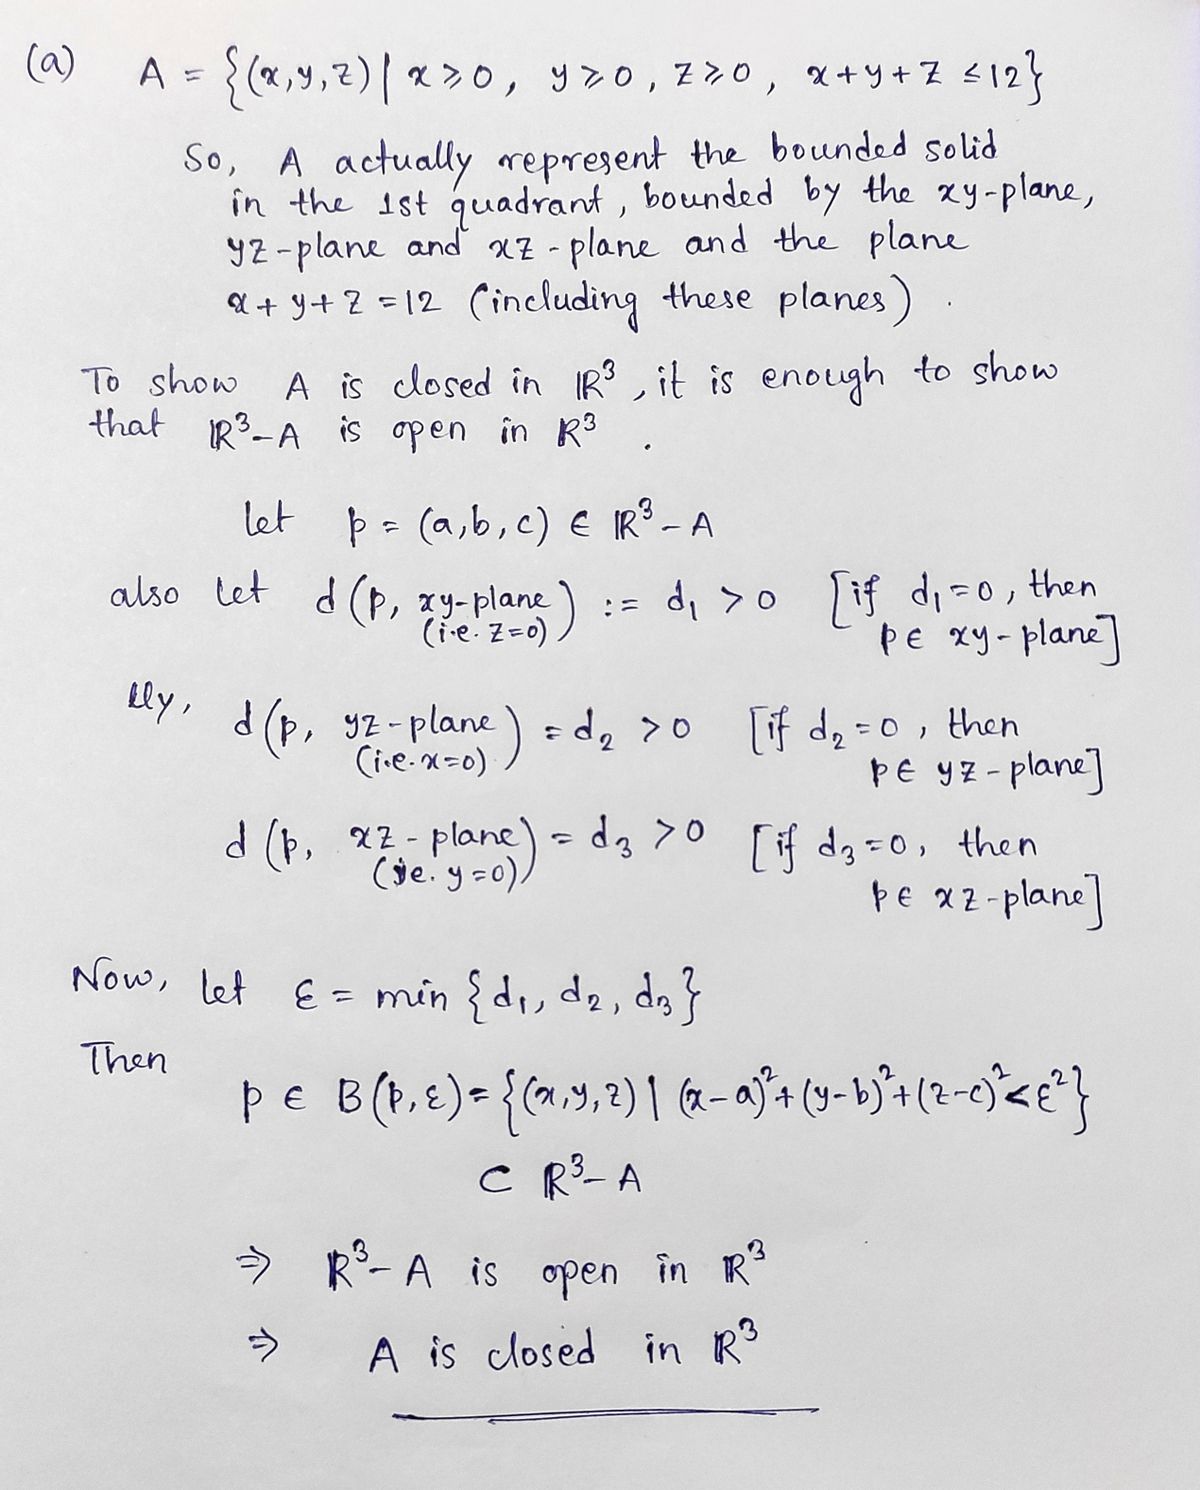 (a) A = {(x,y,z) | x ≥ 0, y ≥ 0, z ≥ 0, x+y+z ≤ 12}
So, A actually represent the bounded solid
in the 1st quadrant, bounded by the xy-plane,
yz-plane and xz-plane and the plane
x+y+z=12 (including these planes).
To show A is closed in ℝ³, it is enough to show
that ℝ³-A is open in ℝ³.
let p = (a,b,c) ∈ ℝ³-A
also let d(p, xy-plane) := d₁ > 0 [if d₁=0, then
(i.e. z=0) p ∈ xy-plane]
lly, d(p, yz-plane) = d₂ > 0 [if d₂=0, then
(i.e. x=0) p ∈ yz-plane]
d(p, xz-plane) = d₃ > 0 [if d₃=0, then
(ie. y=0) p ∈ xz-plane]
Now, let ε = min {d₁, d₂, d₃}
Then
p ∈ B(p,ε) = {(x,y,z) | (x-a)²+(y-b)²+(z-c)²<ε²}
⊂ ℝ³-A
⇒ ℝ³-A is open in ℝ³
⇒ A is closed in ℝ³